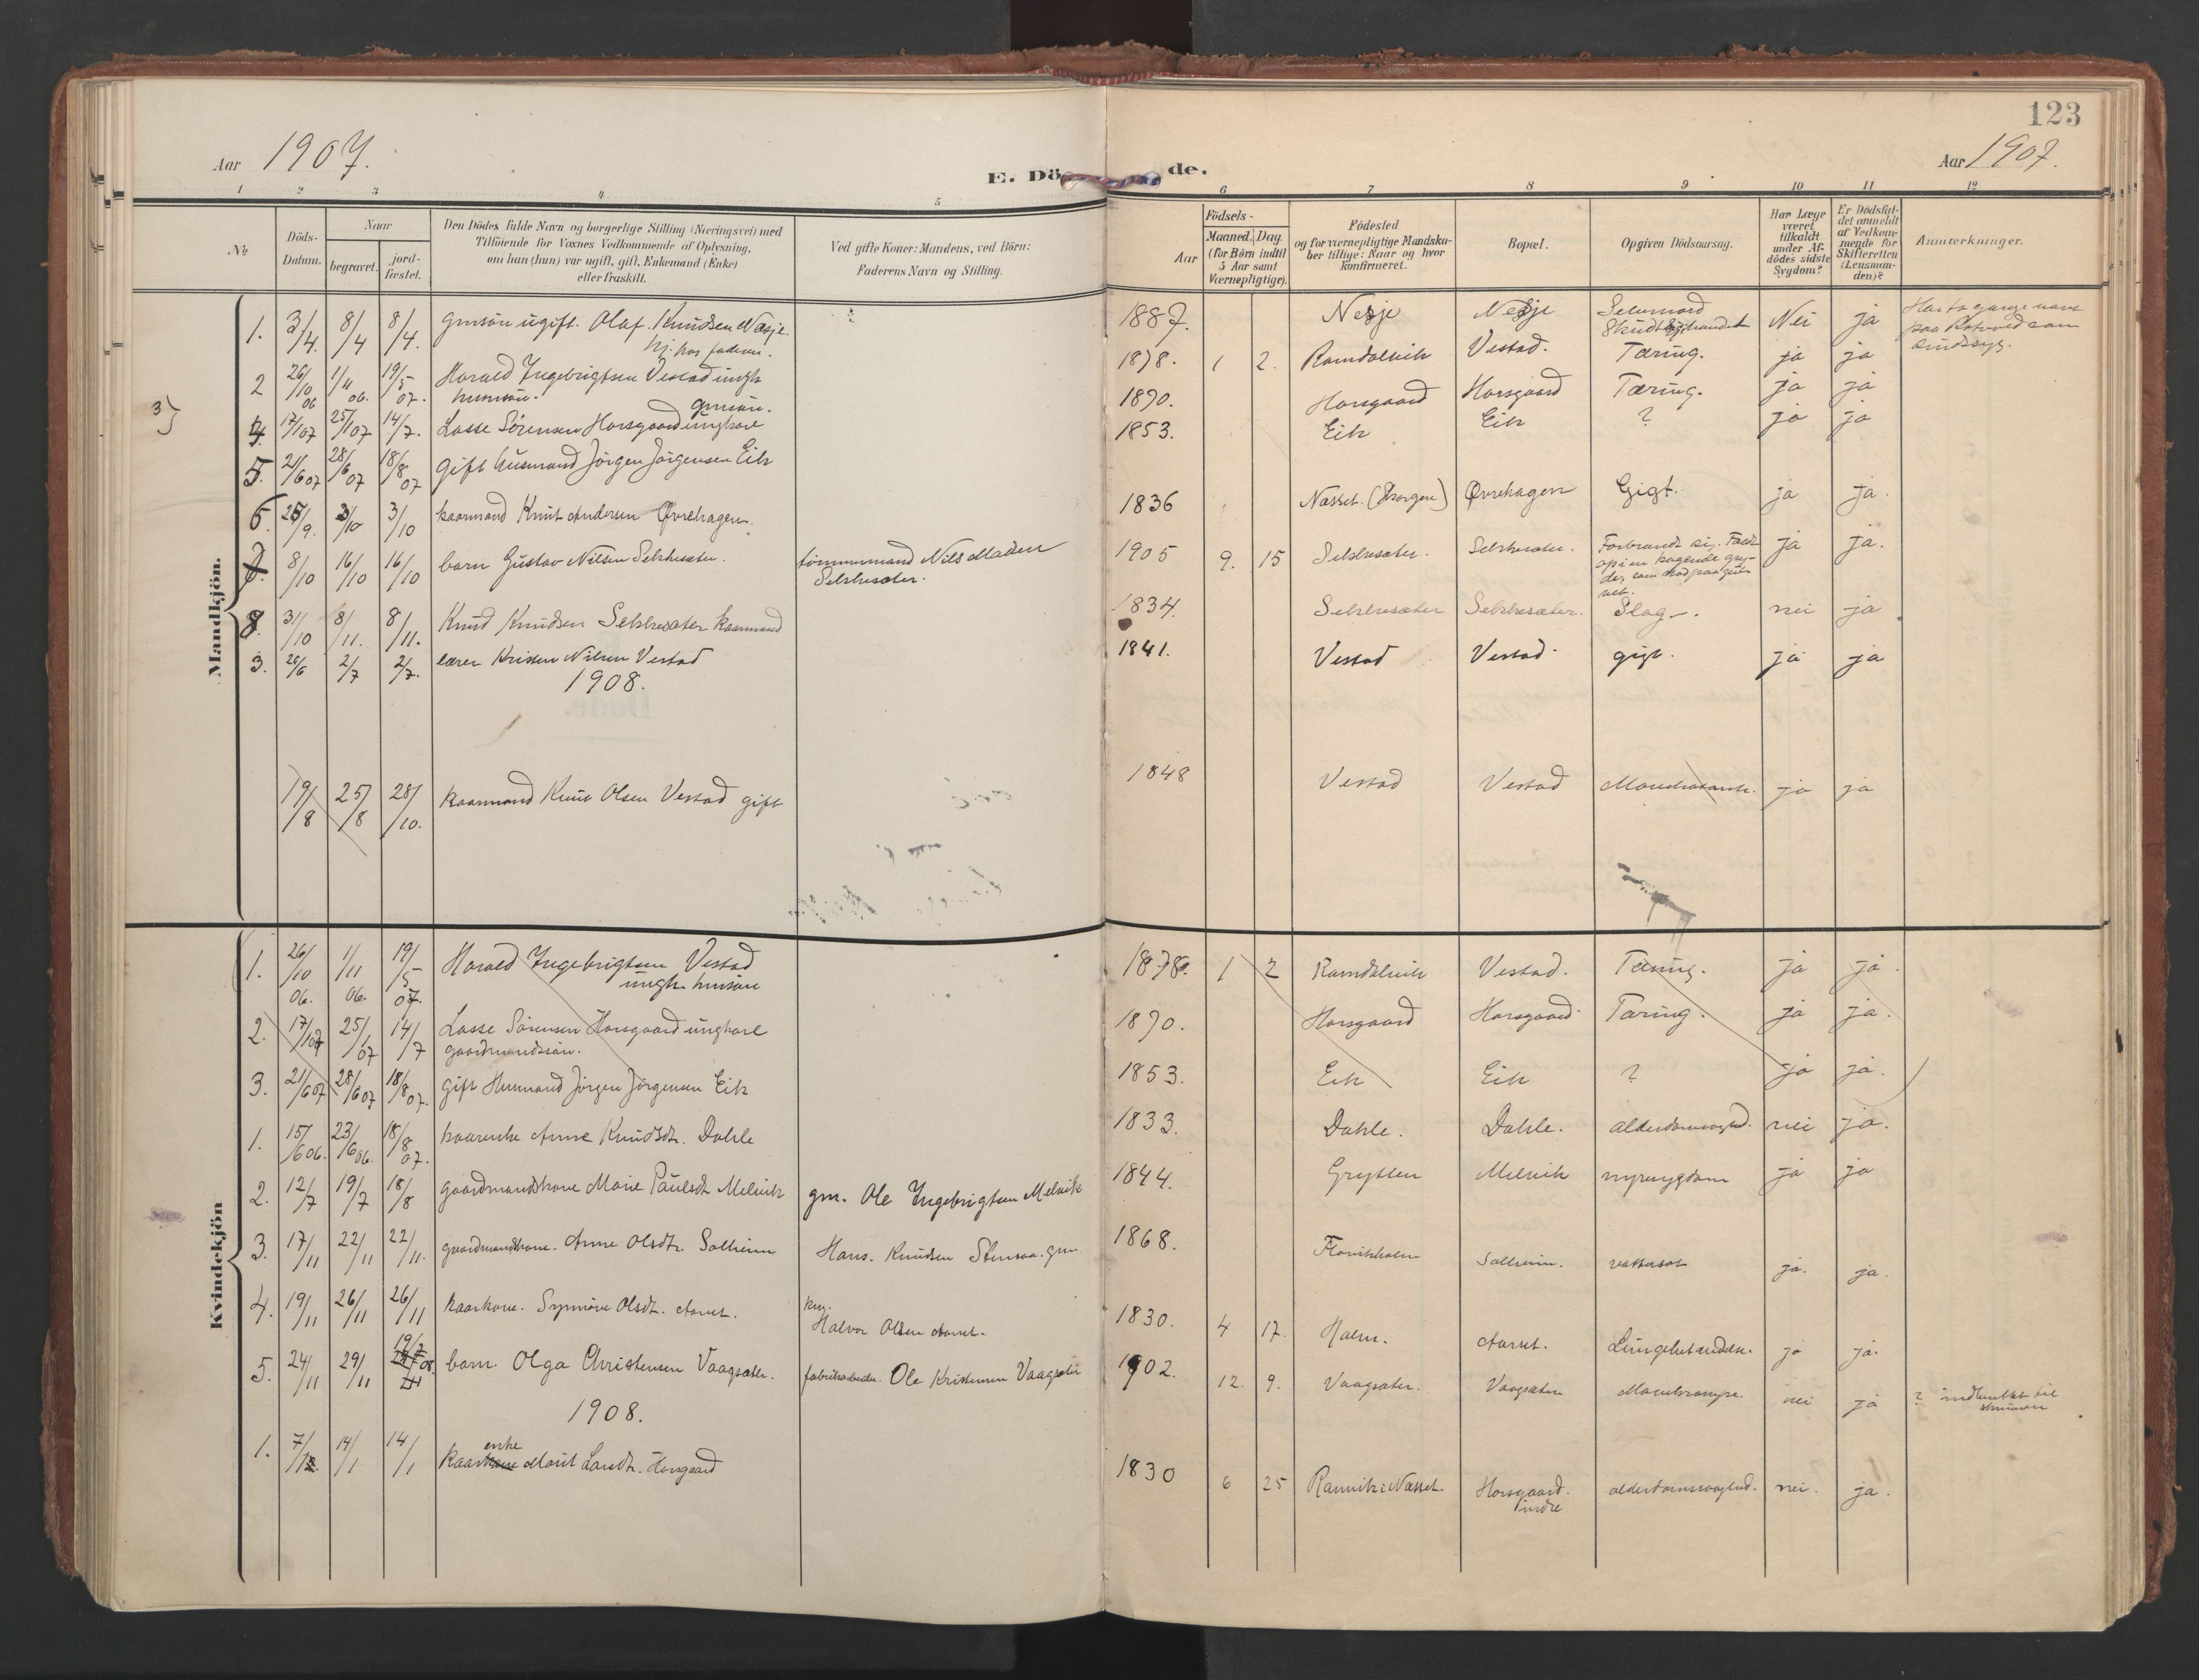 123
Aar 1907.
E. Dö de.
Aar 1907.
1 2 3 4 5 6 7 8 9 10 11 12
№
Döds-
Datum.
Naar
begravet.
jord-
fæstet.
Den Dödes fulde Navn og borgerlige Stilling (Næringsvei) med
Tilföiende for Voxnes Vedkommende af Oplysning,
om han (hun) var ugift, gift, Enkemand (Enke)
eller fraskilt.
Ved gifte Koner: Mandens, ved Börn:
Faderens Navn og Stilling.
Födsels-
Aar
Maaned. Dag.
(for Börn indtil
5 Aar samt
Værnepligtige).
Födested
og for værnepligtige Mandska-
ber tillige: Naar og hvor
konfirmeret.
Bopæl.
Opgiven Dödsaarsag.
Har Læge
været
tilkaldt
under Af-
dödes sidste
Sygdom?
Er Dödsfal-
det anmeldt
af Vedkom-
mende for
Skifteretten
(Lensman-
den)?
Anmærkninger.
Mandkjön.
1. 3/4. 8/4 8/4. gmsön ugift. Olaf. Knudsen Nesje. 1887. Nesje Nesje Selvmord Nei ja
hj. hos faderen.
2 26/10 06 1/11 06. 19/5 07. Harald Ingebrigtsen Vestad ungk 1878. 1 2. Ramdalvik Vestad. Tæring. ja ja
husmsön.
gmsön.
3}
4. 17/1 07 25/1 07 14/7. Lasse Sörensen Horsgaard ungkarl 1890. Horsgaard Horsgaard Tæring. ja ja
5. 21/6 07 28/6 07 18/8 07 gift husmand Jörgen Jörgensen Eik 1853. Eik Eik ? ja ja
6. 25/9. 3/10 3/10 kaarmand Knut Andersen Øvrehagen. 1836 Næsset. Øvrehagen Gigt. ja ja.
7. 8/10 16/10 16/10 barn Gustav Nilsen Selsbesæter. tömmermand Nils Madsen 1905 9. 15 Selsbesæter. Selsbesæter. Forbrandt sig. Faldt ja ja.
Selsbesæter.
op i en kogende gry-
de, som stod paa gul-
vet.
8. 31/10 8/11. 8/11. Knud Knudsen Selsbesæter kaarmand 1834. Selsbesæter Selsbesæter. Slag. nei ja
3. 26/6 2/7 2/7. lærer Kristen Nilsen Vestad 1841. Vestad Vestad. gigt. ja ja
1908.
19/8 25/8 28/10. kaarmand Knut Olsen Vestad gift 1848 Vestad Vestad ja ja
Kvindekjön
1. 26/10 06. 1/11 06. 19/5 07. Harald Ingebrigtsen Vestad 1878. 1 2 Ramdalvik Vestad. Tæring. ja ja.
ungk. husmsön
2. 17/1 07 25/1 07 14/7 Lasse Sörensen Horsgaard ungkarl 1890. Horsgaard Horsgaard Tæring. ja ja.
gaardmandssön.
3. 21/6 07 28/6 07 18/8 07. gift Husmand Jörgen Jörgensen Eik 1853. Eik Eik ? ja ja.
1. 15/6 06. 23/6 06. 18/8 07. kaarenke Anne Knudsdt. Dahle 1833. Dahle. Dahle. alderdomssvaghed. nei ja.
2. 12/7 19/7 18/8 gaardmandskone Marie Paulsdt Melvik gm. Ole Ingebrigtsen Melvik 1844. Grytten Melvik nyresygdom ja ja
3. 17/11 22/11 22/11. gaardmandskone. Anne Olsdt. Solheim Hans. Knudsen gm 1868. Solheim. vattersot ja. ja.
4. 19/11 26/11 26/11 kaarkone. Synnöve Olsdt. Aarset. km. 1830. 4 17. Holm. Aarset. Lungebetændelse. ja ja.
Halvor Olsen Aarset.
5. 24/11 29/11 barn. Olga Christensen Vaagsæter. fabrikarbeider. Ole Kristensen Vaagsæter 1902. 12. 9. Vaagsæter. Vaagsæter nei ja ?
1908.
1. 7/1 14/1 14/1 kaarenke Marit Larsdt. Horsgaard 1830 6 25 Rannvik i Næsset. Horsgaard. alderdomssvaghed. nei. ja.
indre